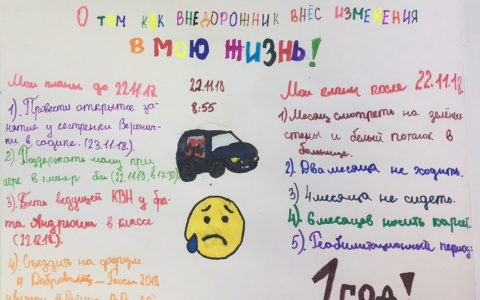 О том как внедорожник внёс изменения
в мою жизнь!
Мои планы до 22.11.18
1). Провести открытое за-
нятие у сестренки Верони-
ки в садике. (23.11.18).
2). Поддержать маму при
(22.11.18, в 17.30).
3). Быть ведущей КВН у бра-
та Андрюши в классе
(22.12.18).
4). Съездить на форум
# Доброволец – России 2018
22.11.18
8:55
Мои планы после 22.11.18
1). Месяц смотреть на зелёные
стены и белый потолок в
больнице.
2). Два месяца не ходить.
3) 4 месяца не сидеть.
4) 6 месяцев носить карсет.
5). Реабилитационный период:
1 год!